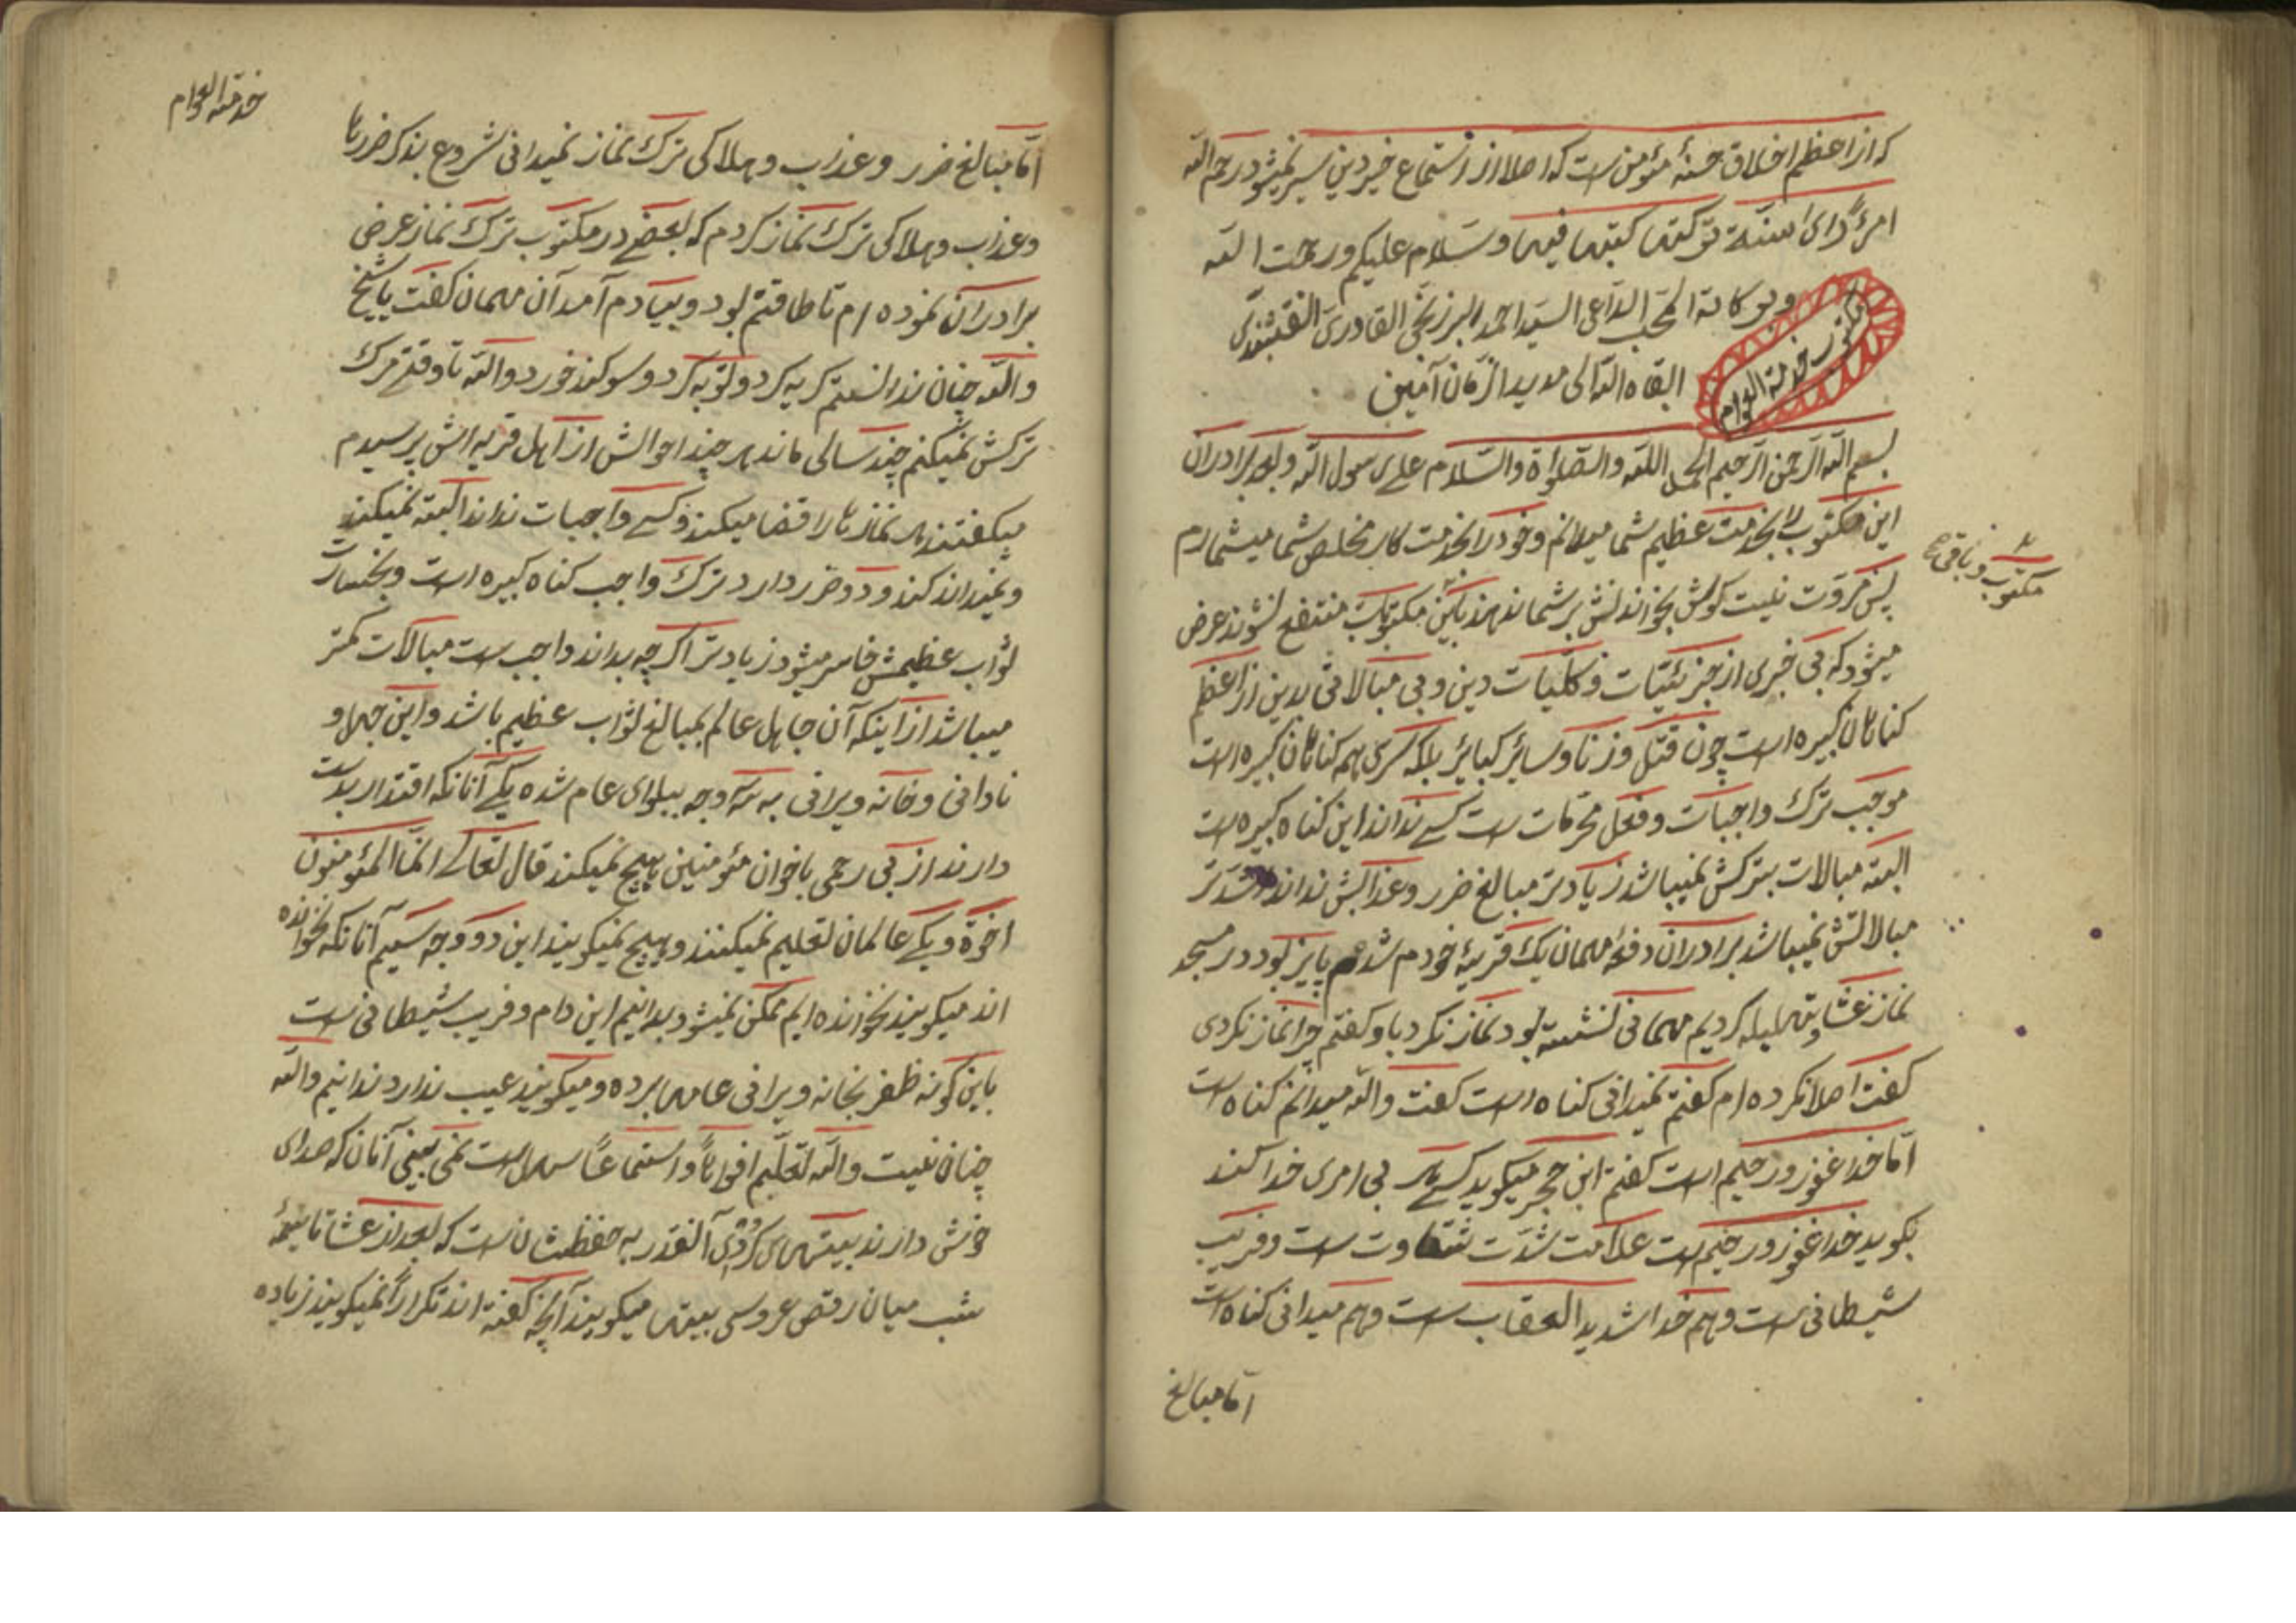 که از اعظم اخلاق حسنهٔ مئومن است که اصلا از استماع خیر دین سیر نمیشود رحم الله
امرءً رای سنّة ترکتها کتبها فیها و سلام علیکم و رحمت الله
و بو کالة المحب الداعی السید احمد البرزنجی القادری النقشبندی
ابقاه الله الی مدید الزمان آمین
مکتوب خدمة العوام
بسم الله الرحمن الرحیم الحمد لله والصلواة والسلام علی رسول الله و بعد برادران
این مکتوب را بخدمت عظیم شما میدانم و خود را بخدمت کار مخلص شما میشمارم
پس مروت نیست گوش بخواندنش بر شما ندهند باین مکتوبات منتفع نشوند عرض
میشود که بی خبری از جزئیّات و کلّیات دین و بی مبالاتی بدین از اعظم
گناهان کبیره است چون قتل و زنا و سائر کبائر بلکه سری همه گناهان کبیره است
موجب ترک واجبات و فعل محرمات است کسے نداند این گناه کبیره است
البته مبالات بترکش نمیباشد زیادتر مبالغ ضرر و عذابش نداند شدتر
مبالاتش نمیباشد برادران دفعهٔ مهمان یک قریهٔ خودم شدم پاییز بود در مسجد
نماز عشا و تهلیله کردیم مهمانی نشسته بود نماز نکرد باو گفتم چرا نماز نکردی
گفت اصلا نکرده ام گفتم نمیدانی گناه است گفت والله میدانم گناه است
اما خدا غفور و رحیم است گفتم ابن حجر میگوید کسے که بی امری خدا کند
بگوید خدا غفور و رحیم است علامت شدّت شقاوت است و فریب
شیطانی است و هم خدا شدید العقاب است و هم میدانی گناه است
امّا مبالغ
مکتوب و باقی
خدمة العوام
امّا مبالغ ضرر و عذاب و هلاکی ترک نماز نمیدانی شروع بذکر ضررها
و عذاب و هلاکی ترک نماز کردم که بعضے در مکتوب ترک نماز عرض
برادران نموده ام تا طاقتم بود و بیادم آمد آن مهمان گفت یا شیخ
والله چنان ندانستم گریه کرد و توبه کرد و سوگند خورد والله تا وقتے مرگ
ترکش نمیکنم چند سالی ماند هر چند احوالش از اهل قریه اش پرسیدم
میگفتند هر نمازها را قضا میکند و کسے واجبات نداند البته نمیکند
و نمیداند کند و دو ضرر دارد ترک واجب گناه کبیره است و بخسارت
ثواب عظیمش خاسر میشود زیادتر اگرچه بداند واجب است مبالات کمتر
میباشد از اینکه آن جاهل عالم بمبالغ ثواب عظیم باشد و این جهل و
نادانی و خانه ویرانی به سه وجه ببلوای عام شده یکے آنانکه اقتدار بدست
دارند از بی رحمی باخوان مئومنین هیچ نمیکند قال تعالے انّما المئومنون
اخوة و یکے عالمان تعلیم نمیکنند و هیچ نمیگویند این دو وجه سیّم آنانکه نخوانده
اند میگویند نخوانده ایم ممکن نمیشود بدانیم این دام و فریب شیطانی است
باین گونه ظفر بخانه ویرانی عامها برده و میگویند عیب ندارد ندانیم والله
چنان نیست والله تعلّم افواهاً و استماعاً سهل است نمی بینی آنان که صدای
خوش دارند بیتهای کردی آنقدر به حفظشان است که بعد از عشا تا نیمهٔ
شب میان رقص عروسی بیتها میگویند آنچه گفته اند تکراراً نمیگویند زیاده